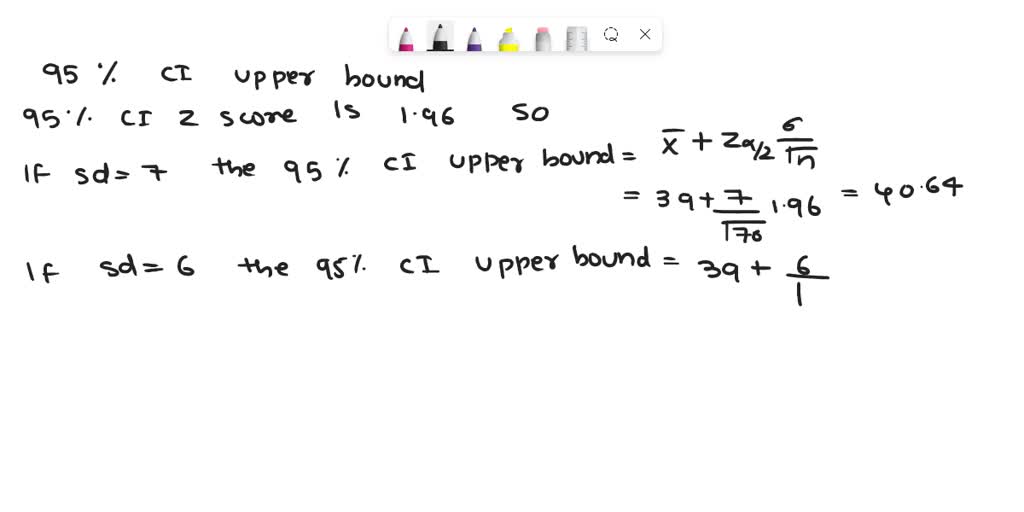 95 % CI upper bound
95% CI z score Is 1.96 so
If sd = 7 the 95% CI upper bound = x̄ + Zα/2 σ/√n
= 39 + 7/√70 1.96 = 40.64
If sd = 6 the 95% CI upper bound = 39 + 6/